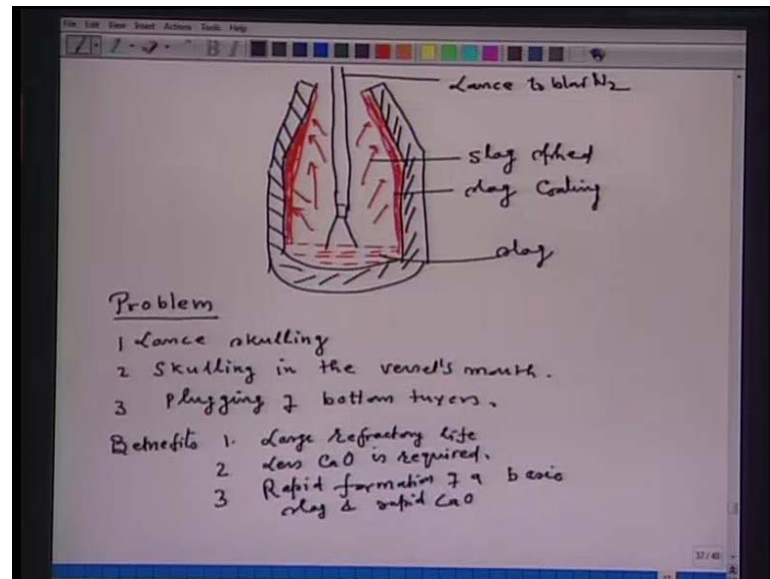 File Edit View Insert Actions Tools Help
B I
Lance to blow N2
slag
slag Coating
slag
Problem
1 Lance skulling
2 Skulling in the vessel's mouth.
3 Plugging of bottom tuyers.
Benefits 1. Large refractory life
2 Less CaO is required.
3 Rapid formation of a basic
slag & rapid CaO
37/40